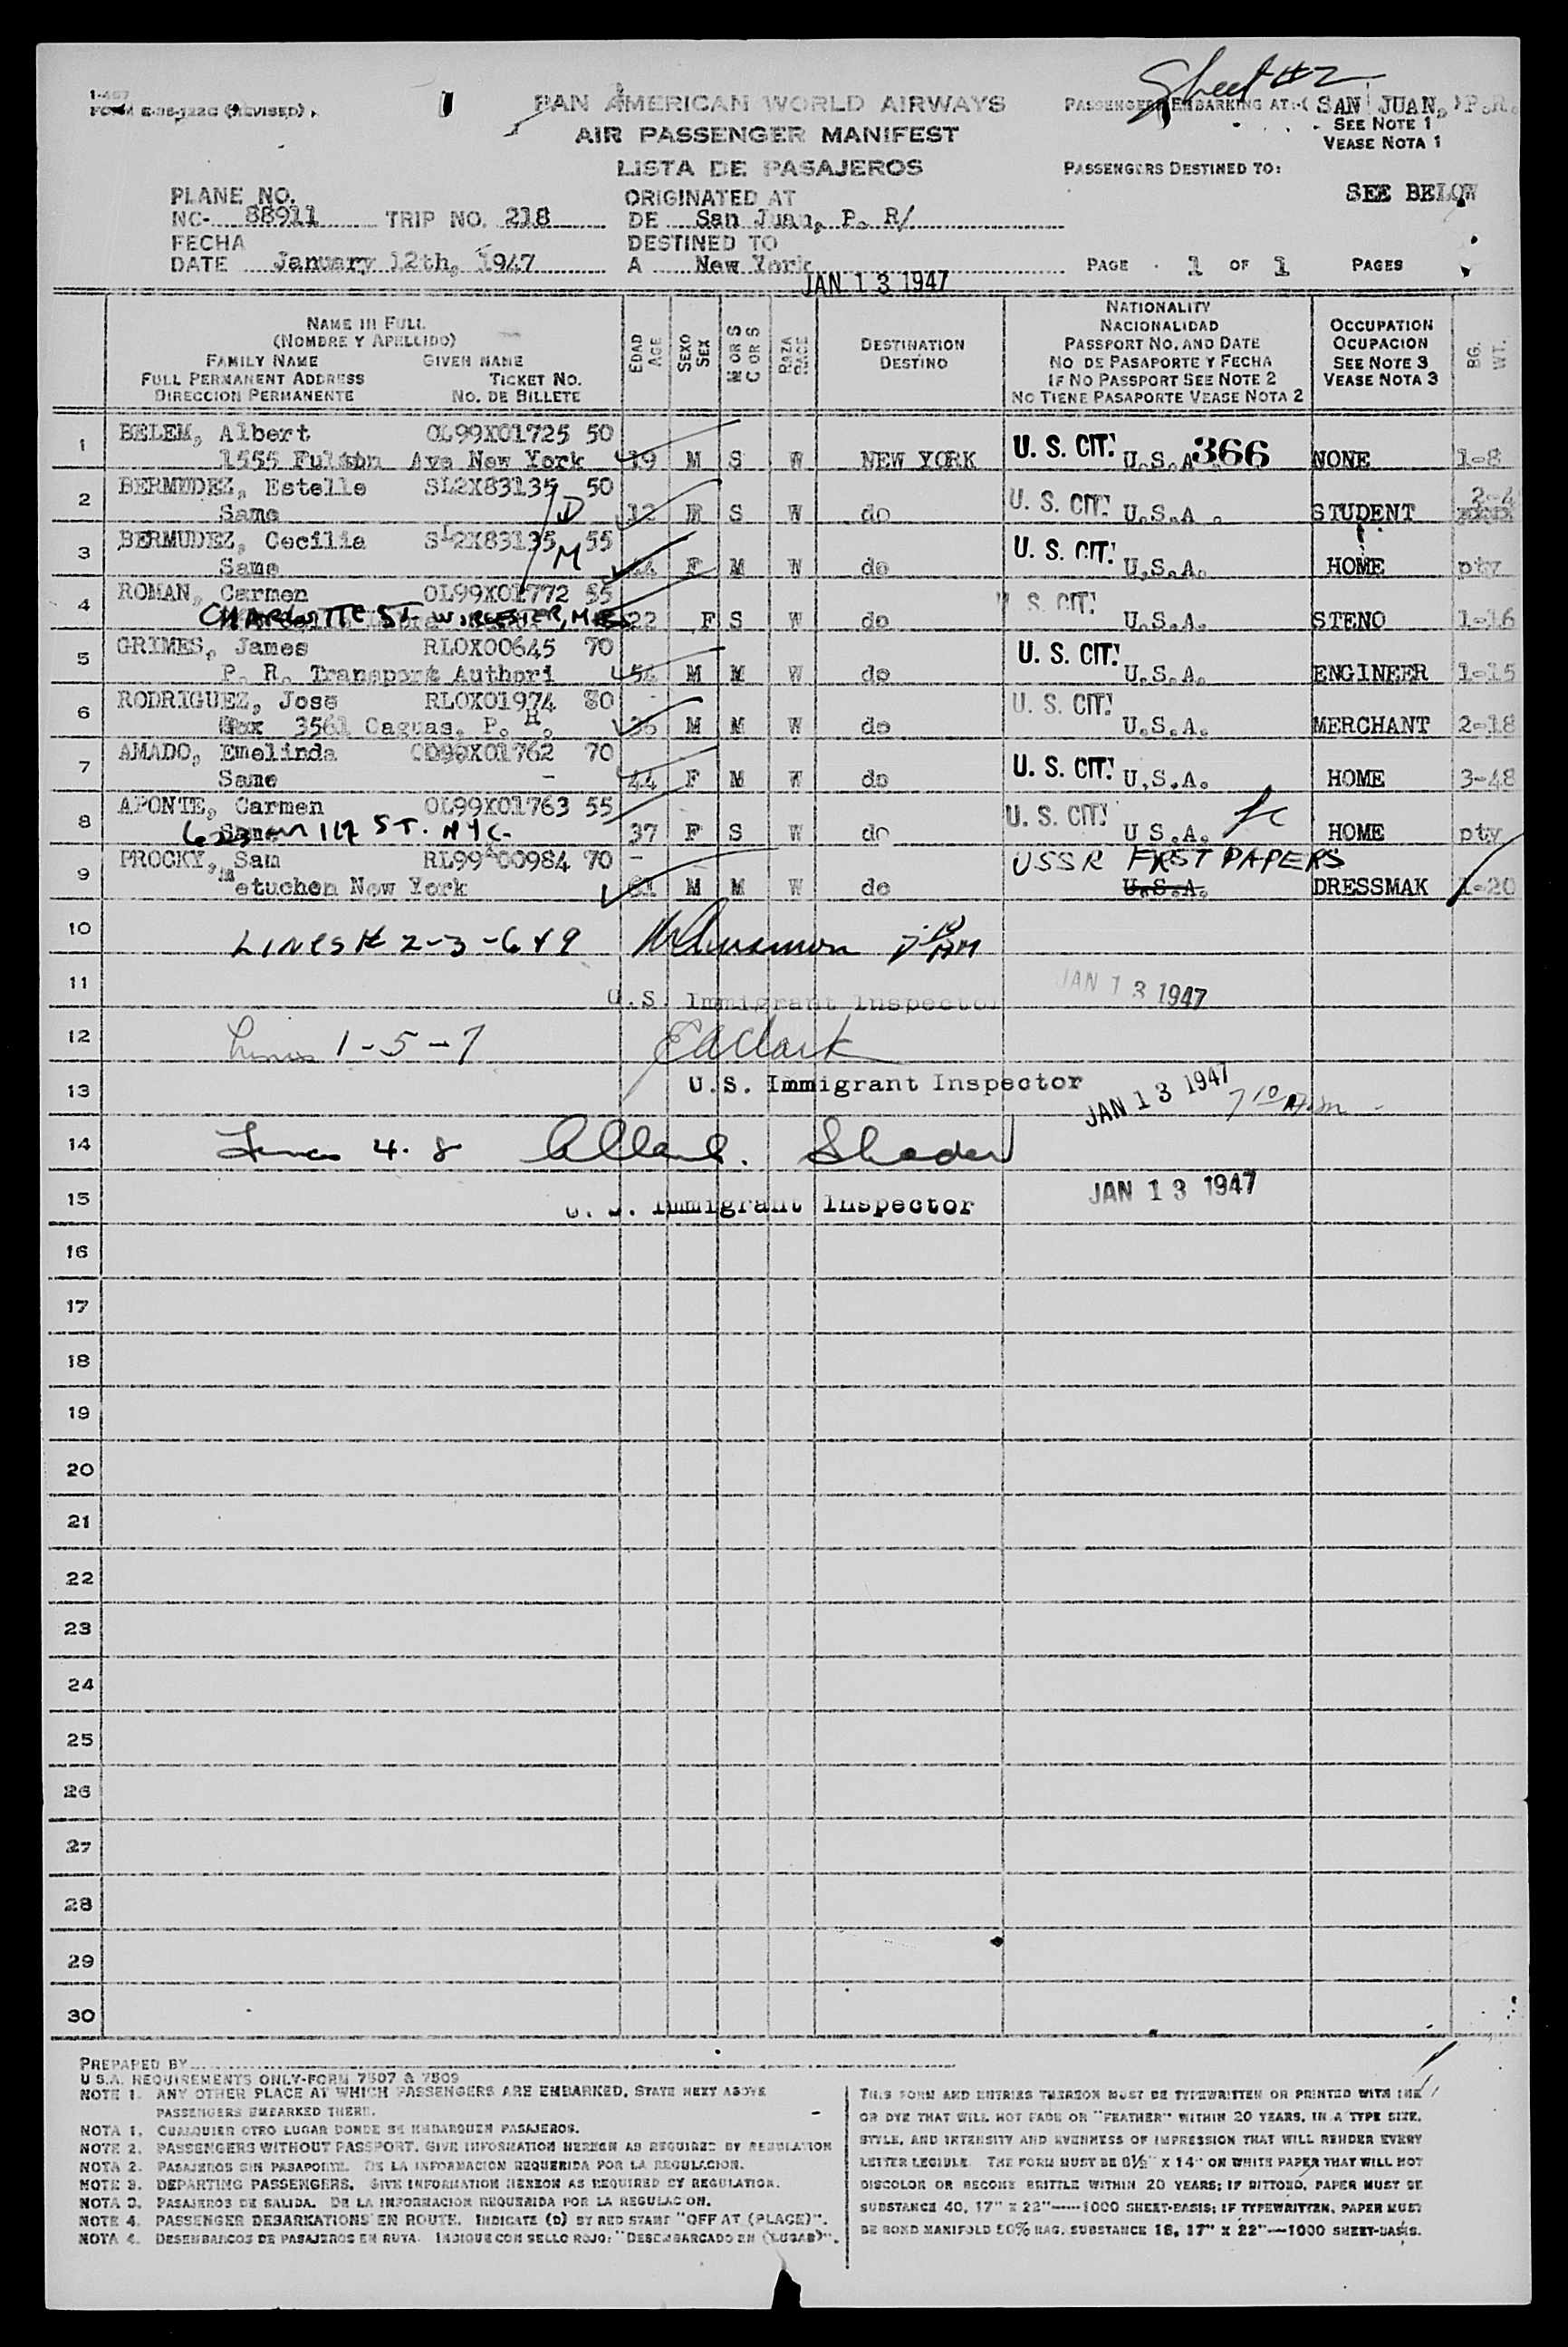 Sheet #2
FORM E-36-122C (REVISED)
PAN AMERICAN WORLD AIRWAYS
PASSENGERS EMBARKING AT:-( SAN JUAN, )P.R.
AIR PASSENGER MANIFEST
SEE NOTE 1
VEASE NOTA 1
LISTA DE PASAJEROS
PASSENGERS DESTINED TO:
SEE BELOW
PLANE NO.
NC- 88911 TRIP NO. 218
ORIGINATED AT
DE San Juan, P. R/
FECHA
DATE January 12th, 1947
DESTINED TO
A New York
PAGE 1 OF 1 PAGES
JAN 13 1947
NAME IN FULL
(NOMBRE Y APELLIDO)
FAMILY NAME GIVEN NAME
FULL PERMANENT ADDRESS TICKET NO.
DIRECCION PERMANENTE NO. DE BILLETE
EDAD
AGE
SEXO
SEX
M OR S
C OR S
RAZA
RACE
DESTINATION
DESTINO
NATIONALITY
NACIONALIDAD
PASSPORT NO. AND DATE
NO DE PASAPORTE Y FECHA
IF NO PASSPORT SEE NOTE 2
NO TIENE PASAPORTE VEASE NOTA 2
OCCUPATION
OCUPACION
SEE NOTE 3
VEASE NOTA 3
BG.
WT.
1 BELEM, Albert OL99X01725 50
1555 Fulton Ave New York 19 M S W NEW YORK U. S. CIT. U.S.A 366 NONE 1-8
2 BERMUDEZ, Estelle SL2X83135 50
Same D 12 F S W do U. S. CIT. U.S.A. STUDENT 2-4
3 BERMUDEZ, Cecilia SL2X83135 55
Same M F M W do U. S. CIT. U.S.A. HOME pty
4 ROMAN, Carmen OL99X01772 55
CHARLOTTE ST. WORCESTER, MASS 22 F S W do U. S. CIT. U.S.A. STENO 1-16
5 GRIMES, James RLOX00645 70
P. R. Transport Authori 54 M M W do U. S. CIT. U.S.A. ENGINEER 1-15
6 RODRIGUEZ, Jose RLOX01974 80
Box 3561 Caguas, P. R. 36 M M W do U. S. CIT. U.S.A. MERCHANT 2-18
7 AMADO, Emelinda OD99X01762 70
Same - 44 F M W do U. S. CIT. U.S.A. HOME 3-48
8 APONTE, Carmen OL99X01763 55
Same 117 ST. NYC 37 F S W do U. S. CIT. U S.A. HOME pty
9 PROCKY, Sam RL99X00984 70 - USSR FRST PAPERS
metuchen New York 61 M M W do U.S.A. DRESSMAK 1-20
10 LINES # 2-3-6 & 9 7:10 AM
11 U.S. Immigrant Inspector JAN 13 1947
12 Lines 1-5-7 E A Clark
13 U.S. Immigrant Inspector JAN 13 1947 7 10 A.m
14 Lines 4. 8 Shader
15 U. S. Immigrant Inspector JAN 13 1947
16
17
18
19
20
21
22
23
24
25
26
27
28
29
30
PREPARED BY
U S.A. REQUIREMENTS ONLY-FORM 7507 & 7509
NOTE 1. ANY OTHER PLACE AT WHICH PASSENGERS ARE EMBARKED, STATE NEXT ABOVE
PASSENGERS EMBARKED THERE.
NOTA 1. CUALQUIER OTRO LUGAR DONDE SE EMBARQUEN PASAJEROS.
NOTE 2. PASSENGERS WITHOUT PASSPORT. GIVE INFORMATION HEREON AS REQUIRED BY REGULATION
NOTA 2. PASAJEROS SIN PASAPORTE. DE LA INFORMACION REQUERIDA POR LA REGULACION.
NOTE 3. DEPARTING PASSENGERS. GIVE INFORMATION HEREON AS REQUIRED BY REGULATION.
NOTA 3. PASAJEROS DE SALIDA. DE LA INFORMACION REQUERIDA POR LA REGULACION.
NOTE 4. PASSENGER DEBARKATIONS EN ROUTE. INDICATE (D) BY RED STAMP "OFF AT (PLACE)".
NOTA 4. DESEMBARCOS DE PASAJEROS EN RUTA. INDIQUE CON SELLO ROJO: "DESEMBARCADO EN (LUGAR)".
THIS FORM AND ENTRIES THEREON MUST BE TYPEWRITTEN OR PRINTED WITH INK
OR DYE THAT WILL NOT FADE OR "FEATHER" WITHIN 20 YEARS, IN A TYPE SIZE,
STYLE, AND INTENSITY AND EVENNESS OF IMPRESSION THAT WILL RENDER EVERY
LETTER LEGIBLE. THE FORM MUST BE 8½" X 14" ON WHITE PAPER THAT WILL NOT
DISCOLOR OR BECOME BRITTLE WITHIN 20 YEARS; IF DITTOED, PAPER MUST BE
SUBSTANCE 40, 17" X 22"-----1000 SHEET-BASIS; IF TYPEWRITTEN, PAPER MUST
BE BOND MANIFOLD 50% RAG. SUBSTANCE 16, 17" X 22"---1000 SHEET-BASIS.